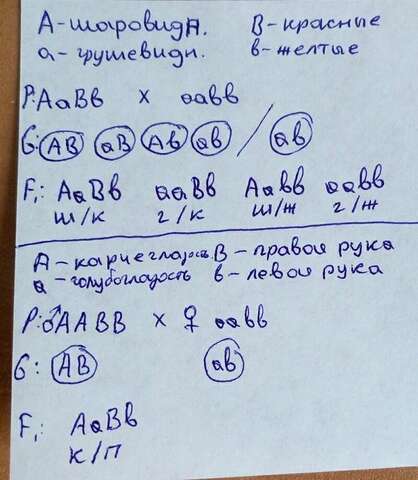 А-шаровидн. В-красные
а-грушевидн. в-желтые
Р: АаВв х аавв
G: АВ аВ Ав ав / ав
F₁: АаВв ааВв Аавв аавв
ш/к г/к ш/ж г/ж
А-кареглазость В-правая рука
а-голубоглазость в-левая рука
Р: ♂ААВВ х ♀ аавв
G: АВ ав
F₁: АаВв
к/п